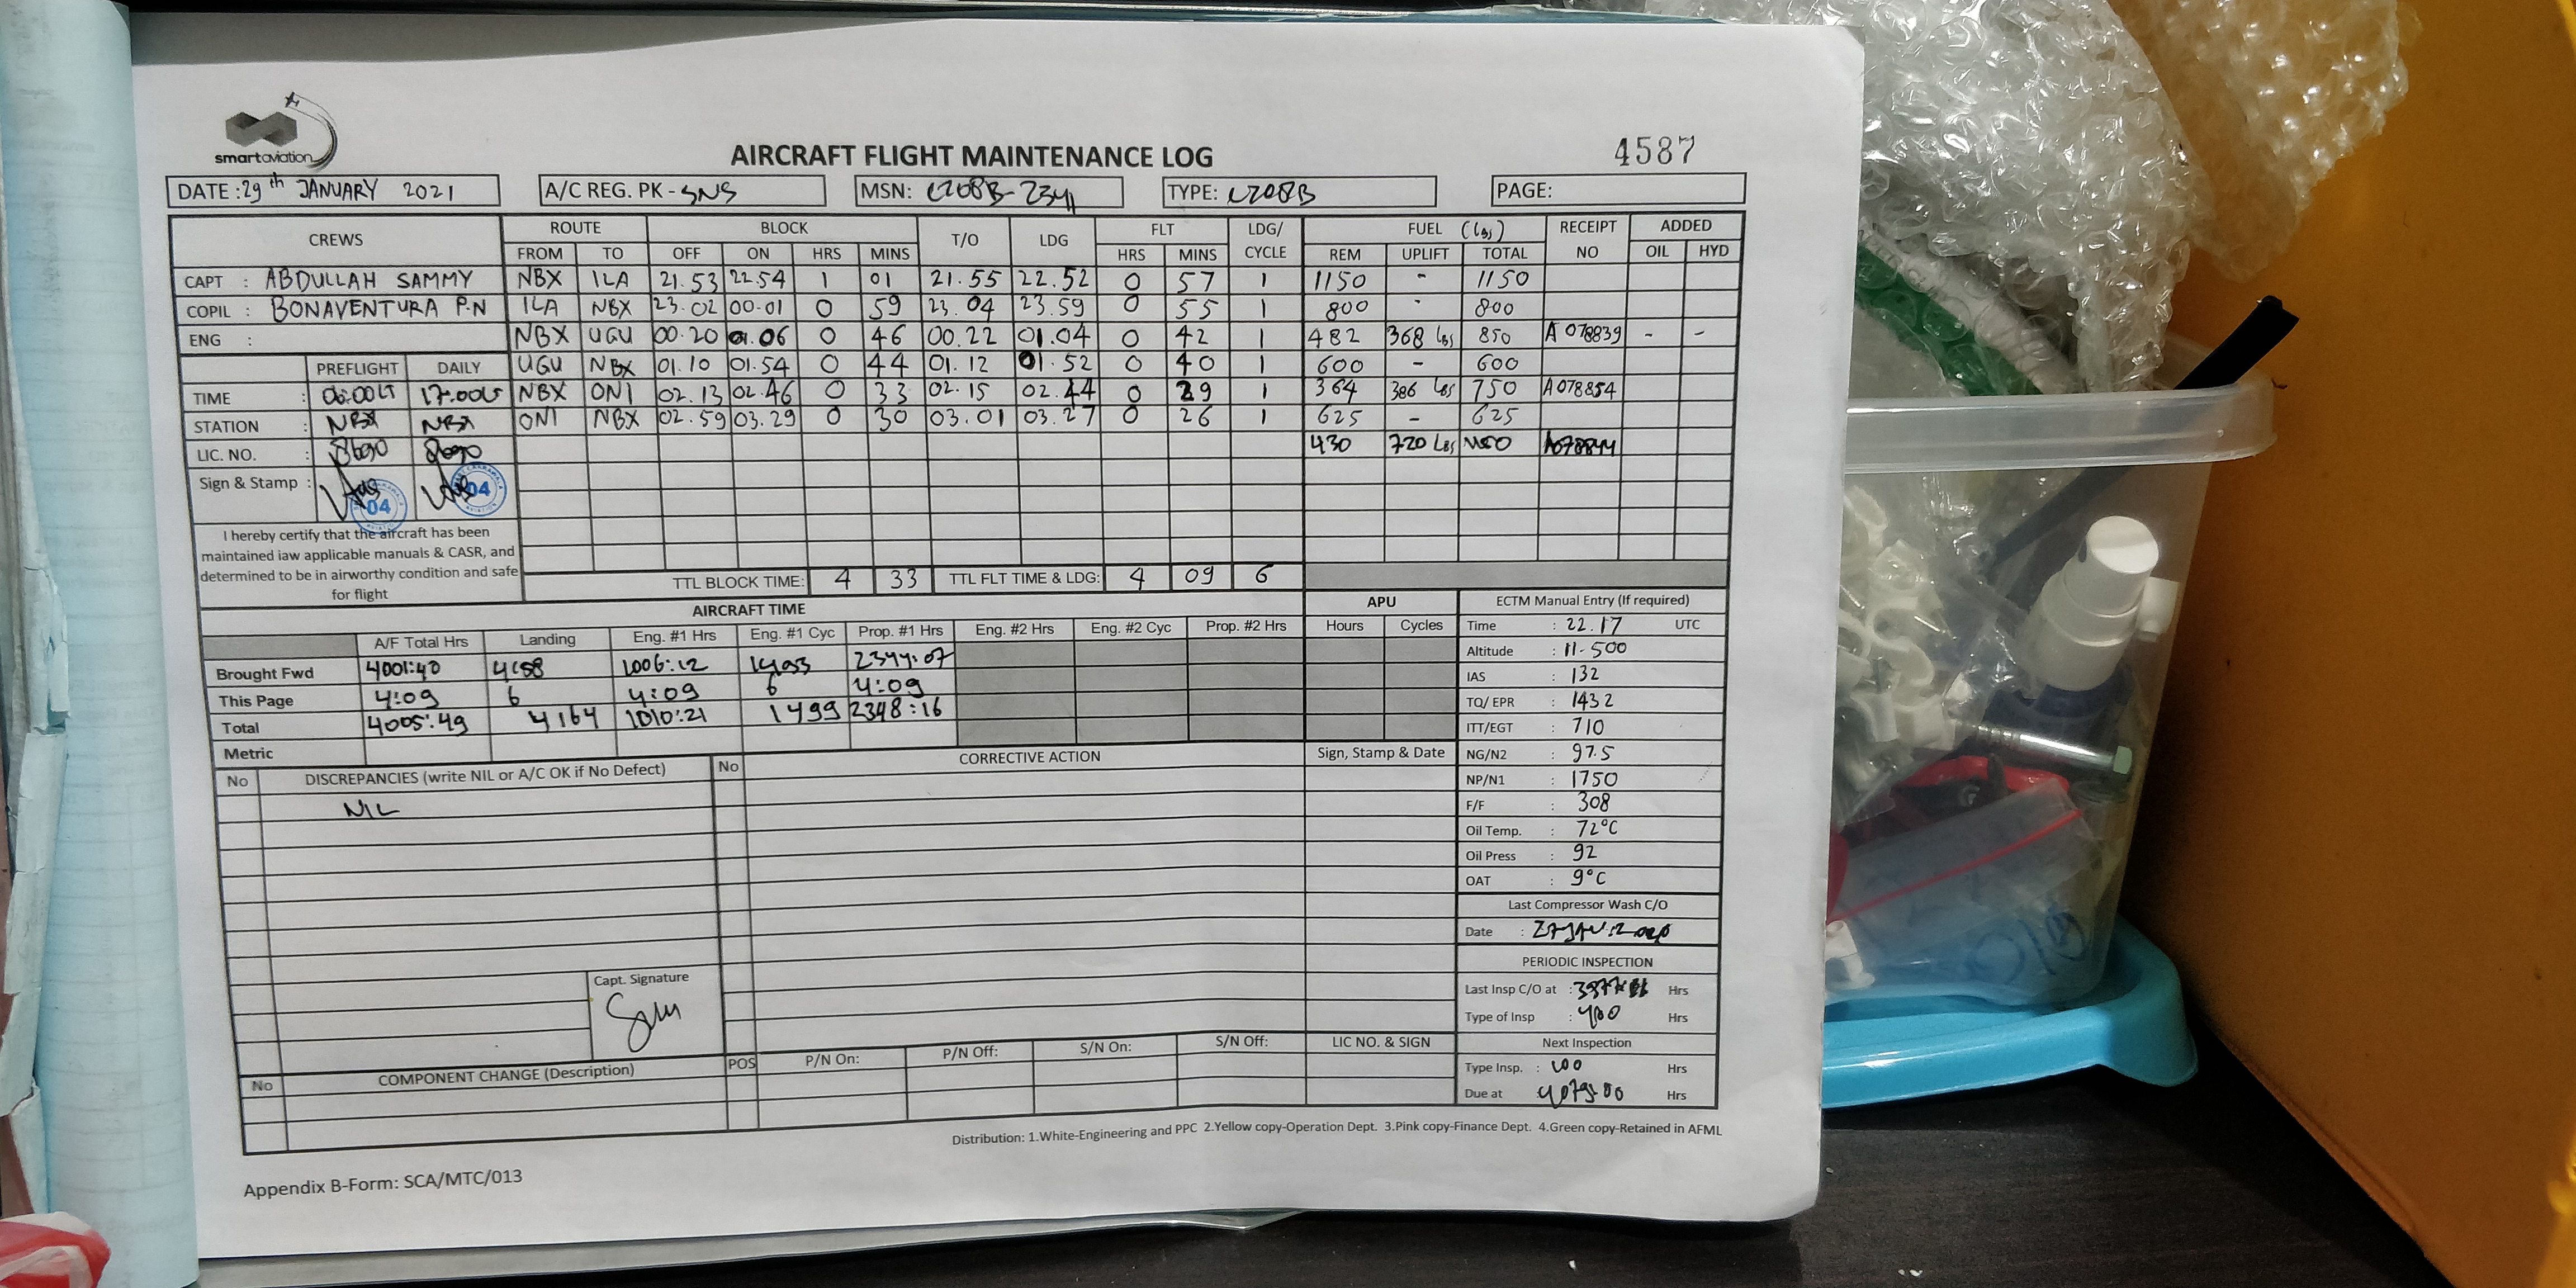 smartaviation
AIRCRAFT FLIGHT MAINTENANCE LOG
4587
DATE : 29th JANUARY 2021
A/C REG. PK - SNS
MSN: C208B-2341
TYPE: C208B
PAGE:
CREWS ROUTE BLOCK T/O LDG FLT LDG/ CYCLE FUEL (Lbs) RECEIPT NO ADDED
FROM TO OFF ON HRS MINS HRS MINS REM UPLIFT TOTAL OIL HYD
CAPT : ABDULLAH SAMMY NBX ILA 21.53 22.54 1 01 21.55 22.52 0 57 1 1150 - 1150
COPIL : BONAVENTURA P.N ILA NBX 23.02 00.01 0 59 23.04 23.59 0 55 1 800 - 800
ENG : NBX UGU 00.20 01.06 0 46 00.22 01.04 0 42 1 482 368 Lbs 850 A 078839 - -
PREFLIGHT DAILY UGU NBX 01.10 01.54 0 44 01.12 01.52 0 40 1 600 - 600
TIME : 06:00LT 17:00LT NBX ONI 02.13 02.46 0 33 02.15 02.44 0 29 1 364 386 Lbs 750 A078854
STATION : NBX NBX ONI NBX 02.59 03.29 0 30 03.01 03.27 0 26 1 625 - 625
LIC. NO. : 8690 8690 430 720 Lbs 1150
Sign & Stamp : 04 04
I hereby certify that the aircraft has been
maintained iaw applicable manuals & CASR, and
determined to be in airworthy condition and safe
for flight
TTL BLOCK TIME: 4 33 TTL FLT TIME & LDG: 4 09 6
AIRCRAFT TIME APU
A/F Total Hrs Landing Eng. #1 Hrs Eng. #1 Cyc Prop. #1 Hrs Eng. #2 Hrs Eng. #2 Cyc Prop. #2 Hrs Hours Cycles
Brought Fwd 4001:40 4158 1006:12 1493 2344:07
This Page 4:09 6 4:09 6 4:09
Total 4005:49 4164 1010:21 1499 2348:16
Metric
ECTM Manual Entry (If required)
Time : 22.17 UTC
Altitude : 11.500
IAS : 132
TQ/ EPR : 1432
ITT/EGT : 710
NG/N2 : 97.5
NP/N1 : 1750
F/F : 308
Oil Temp. : 72°C
Oil Press : 92
OAT : 9°C
Last Compressor Wash C/O
Date :
PERIODIC INSPECTION
Last Insp C/O at : Hrs
Type of Insp : Hrs
Next Inspection
Type Insp. : 100 Hrs
Due at 4079:00 Hrs
No DISCREPANCIES (write NIL or A/C OK if No Defect) No CORRECTIVE ACTION Sign, Stamp & Date
NIL
Capt. Signature
No COMPONENT CHANGE (Description) POS P/N On: P/N Off: S/N On: S/N Off: LIC NO. & SIGN
Distribution: 1.White-Engineering and PPC 2.Yellow copy-Operation Dept. 3.Pink copy-Finance Dept. 4.Green copy-Retained in AFML
Appendix B-Form: SCA/MTC/013